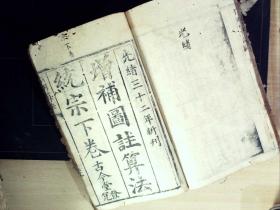 光緒三十二年新刊
增補圖註算法
統宗下卷
古今堂
光緒